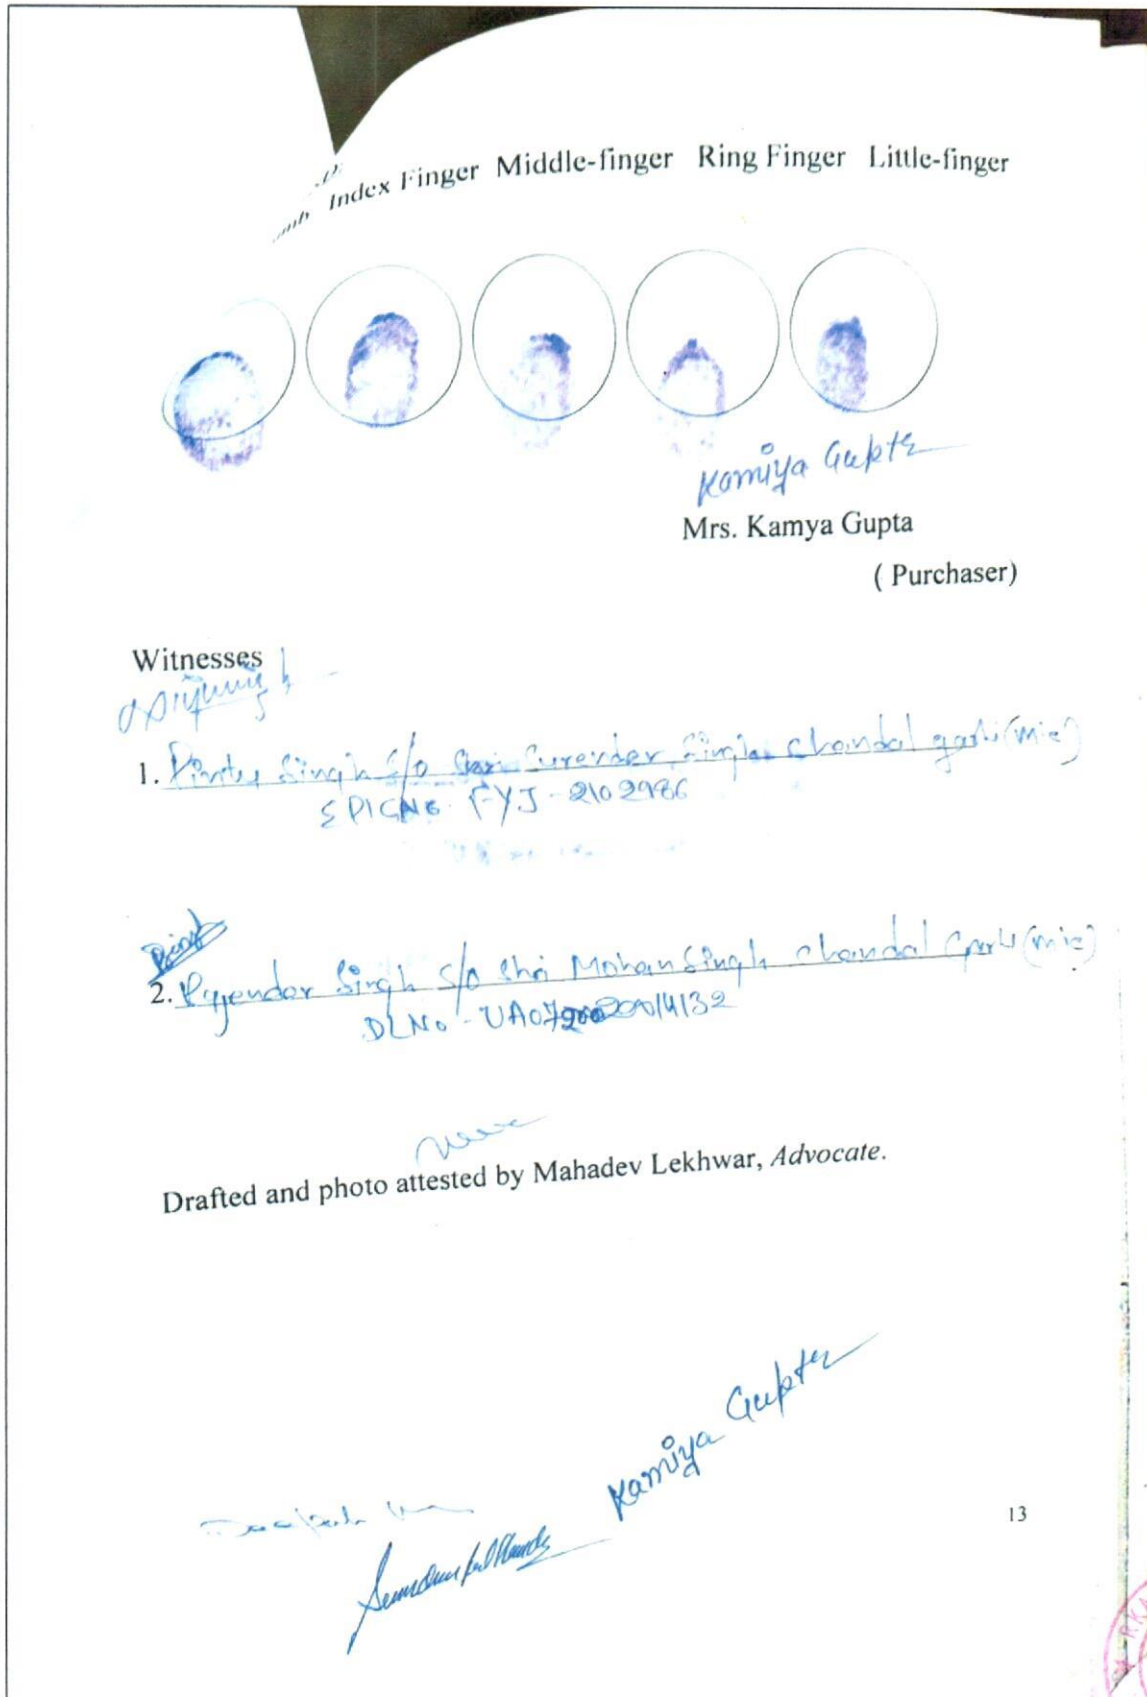 Index Finger Middle-finger Ring Finger Little-finger
Kamiya Gupta
Mrs. Kamya Gupta
( Purchaser)
Witnesses
1. Pintu Singh S/o Shri Surender Singh Chandal garhi (Mie)
EPIC No FYJ-2102986
2. Rajender Singh S/o Shri Mohan Singh Chandal Garhi (Mie)
DL No - UA07
Drafted and photo attested by Mahadev Lekhwar, Advocate.
Kamiya Gupta
13